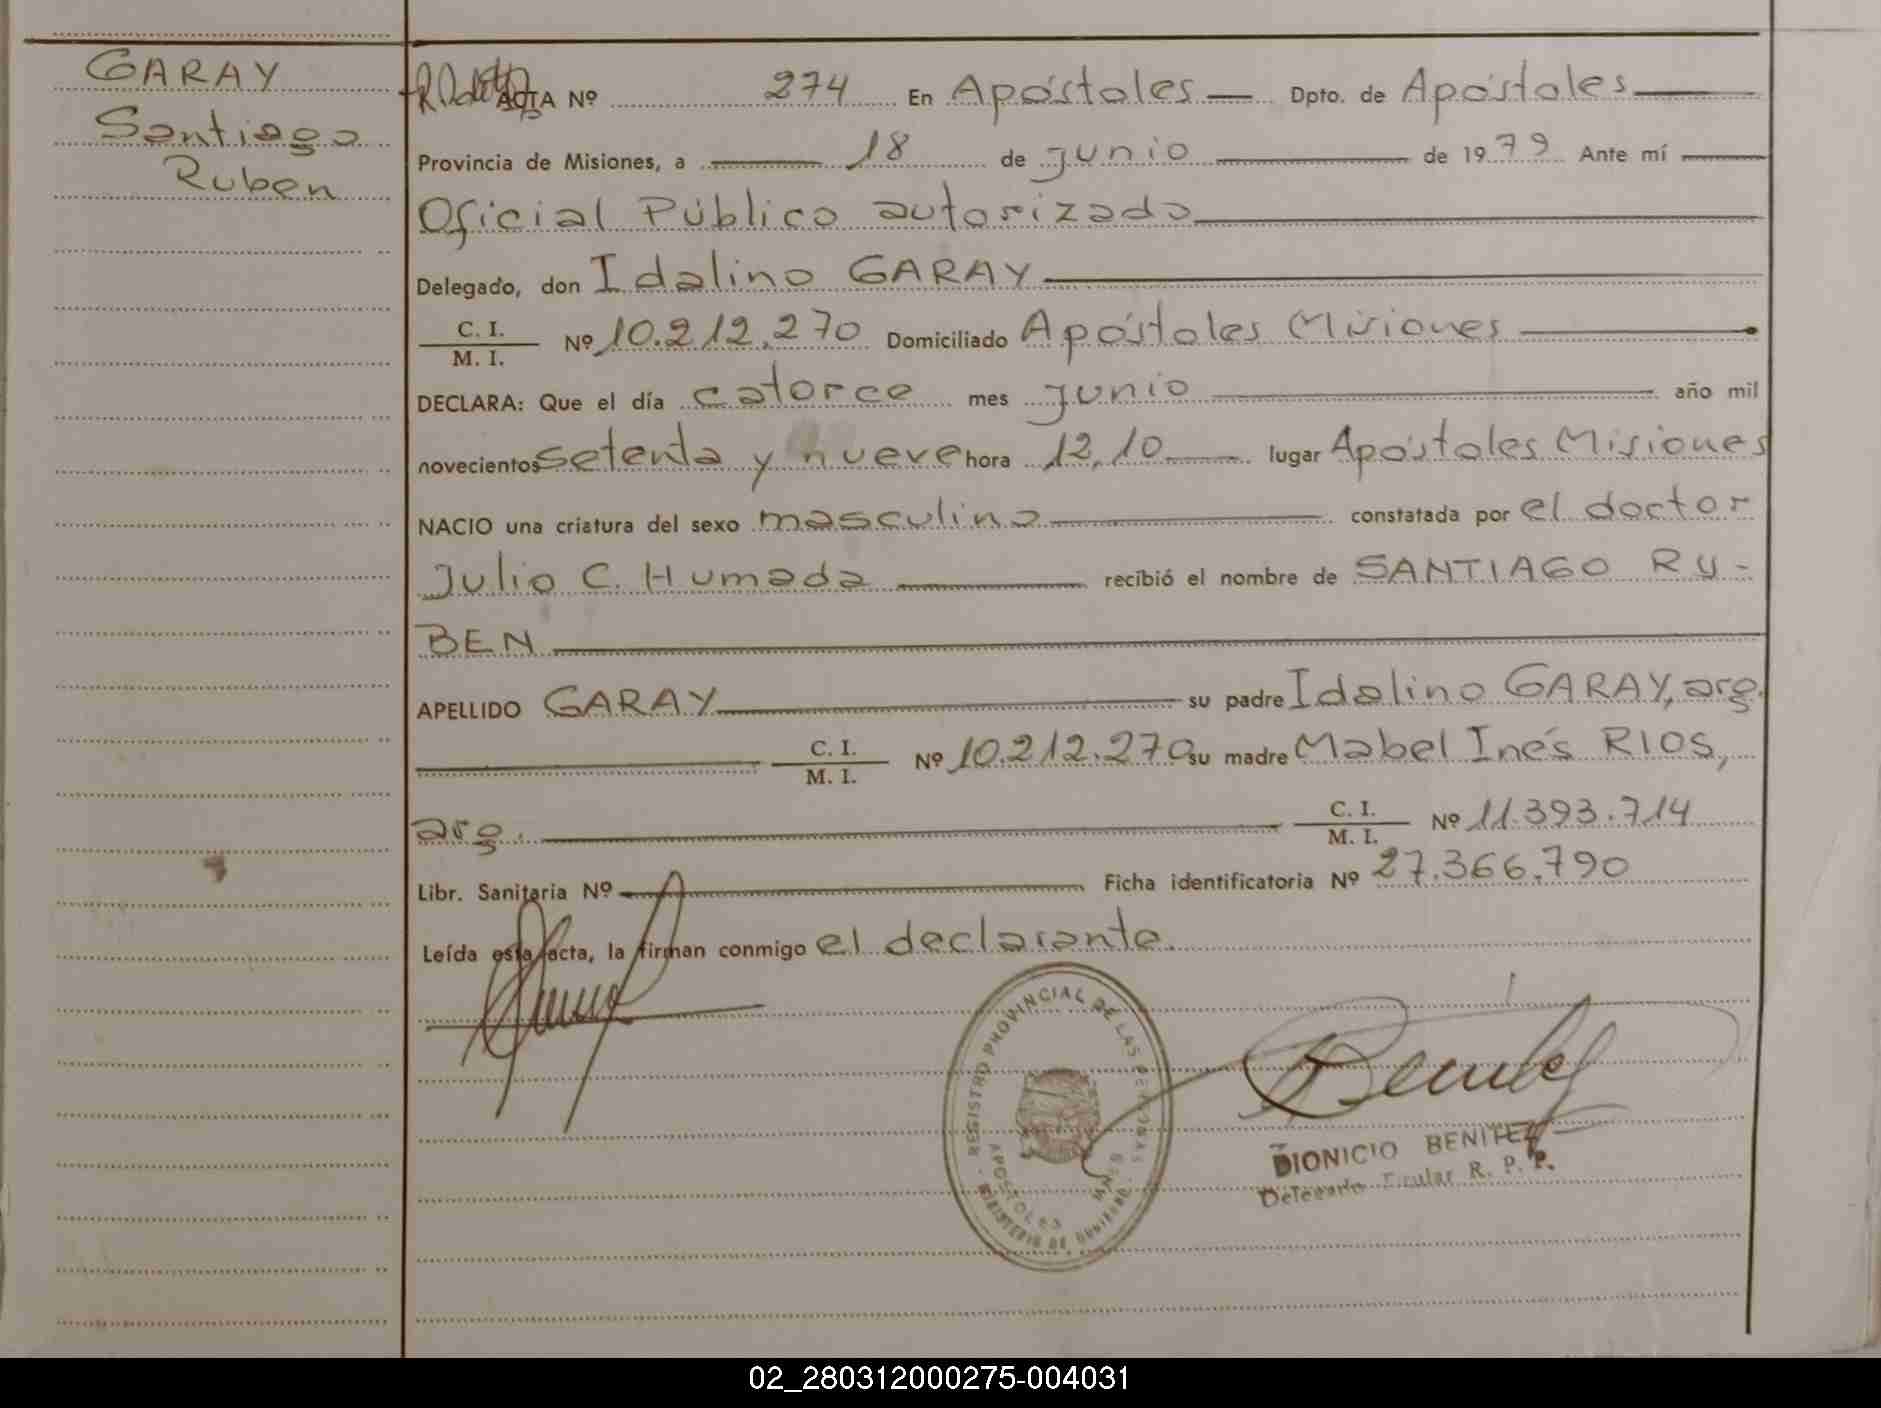 GARAY
Santiago
Ruben
ACTA Nº 274 En Apóstoles Dpto. de Apóstoles
Provincia de Misiones, a 18 de junio de 1979 Ante mí
Oficial Público autorizado
Delegado, don Idalino GARAY
C. I.
M. I. Nº 10.212.270 Domiciliado Apóstoles Misiones
DECLARA: Que el día catorce mes junio año mil
novecientos setenta y nueve hora 12,10 lugar Apóstoles Misiones
NACIO una criatura del sexo masculino constatada por el doctor
Julio C. Humada recibió el nombre de SANTIAGO RU-
BEN
APELLIDO GARAY su padre Idalino GARAY, arg.
C. I.
M. I. Nº 10.212.270 su madre Mabel Inés RIOS,
arg. C. I.
M. I. Nº 11.393.714
Libr. Sanitaria Nº Ficha identificatoria Nº 27.366.790
Leída esta acta, la firman conmigo el declarante.
REGISTRO PROVINCIAL DE LAS PERSONAS
APOSTOLES MNES
MINISTERIO DE GOBIERNO
DIONICIO BENITEZ
Delegado Titular R. P. P.
02_280312000275-004031